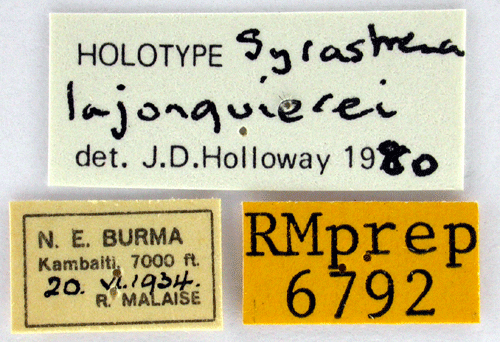 HOLOTYPE Syrastrena
lajonquierei
det. J.D.Holloway 1980
N. E. BURMA
Kambaiti, 7000 ft.
20. VI. 1934.
R. MALAISE
RMprep
6792